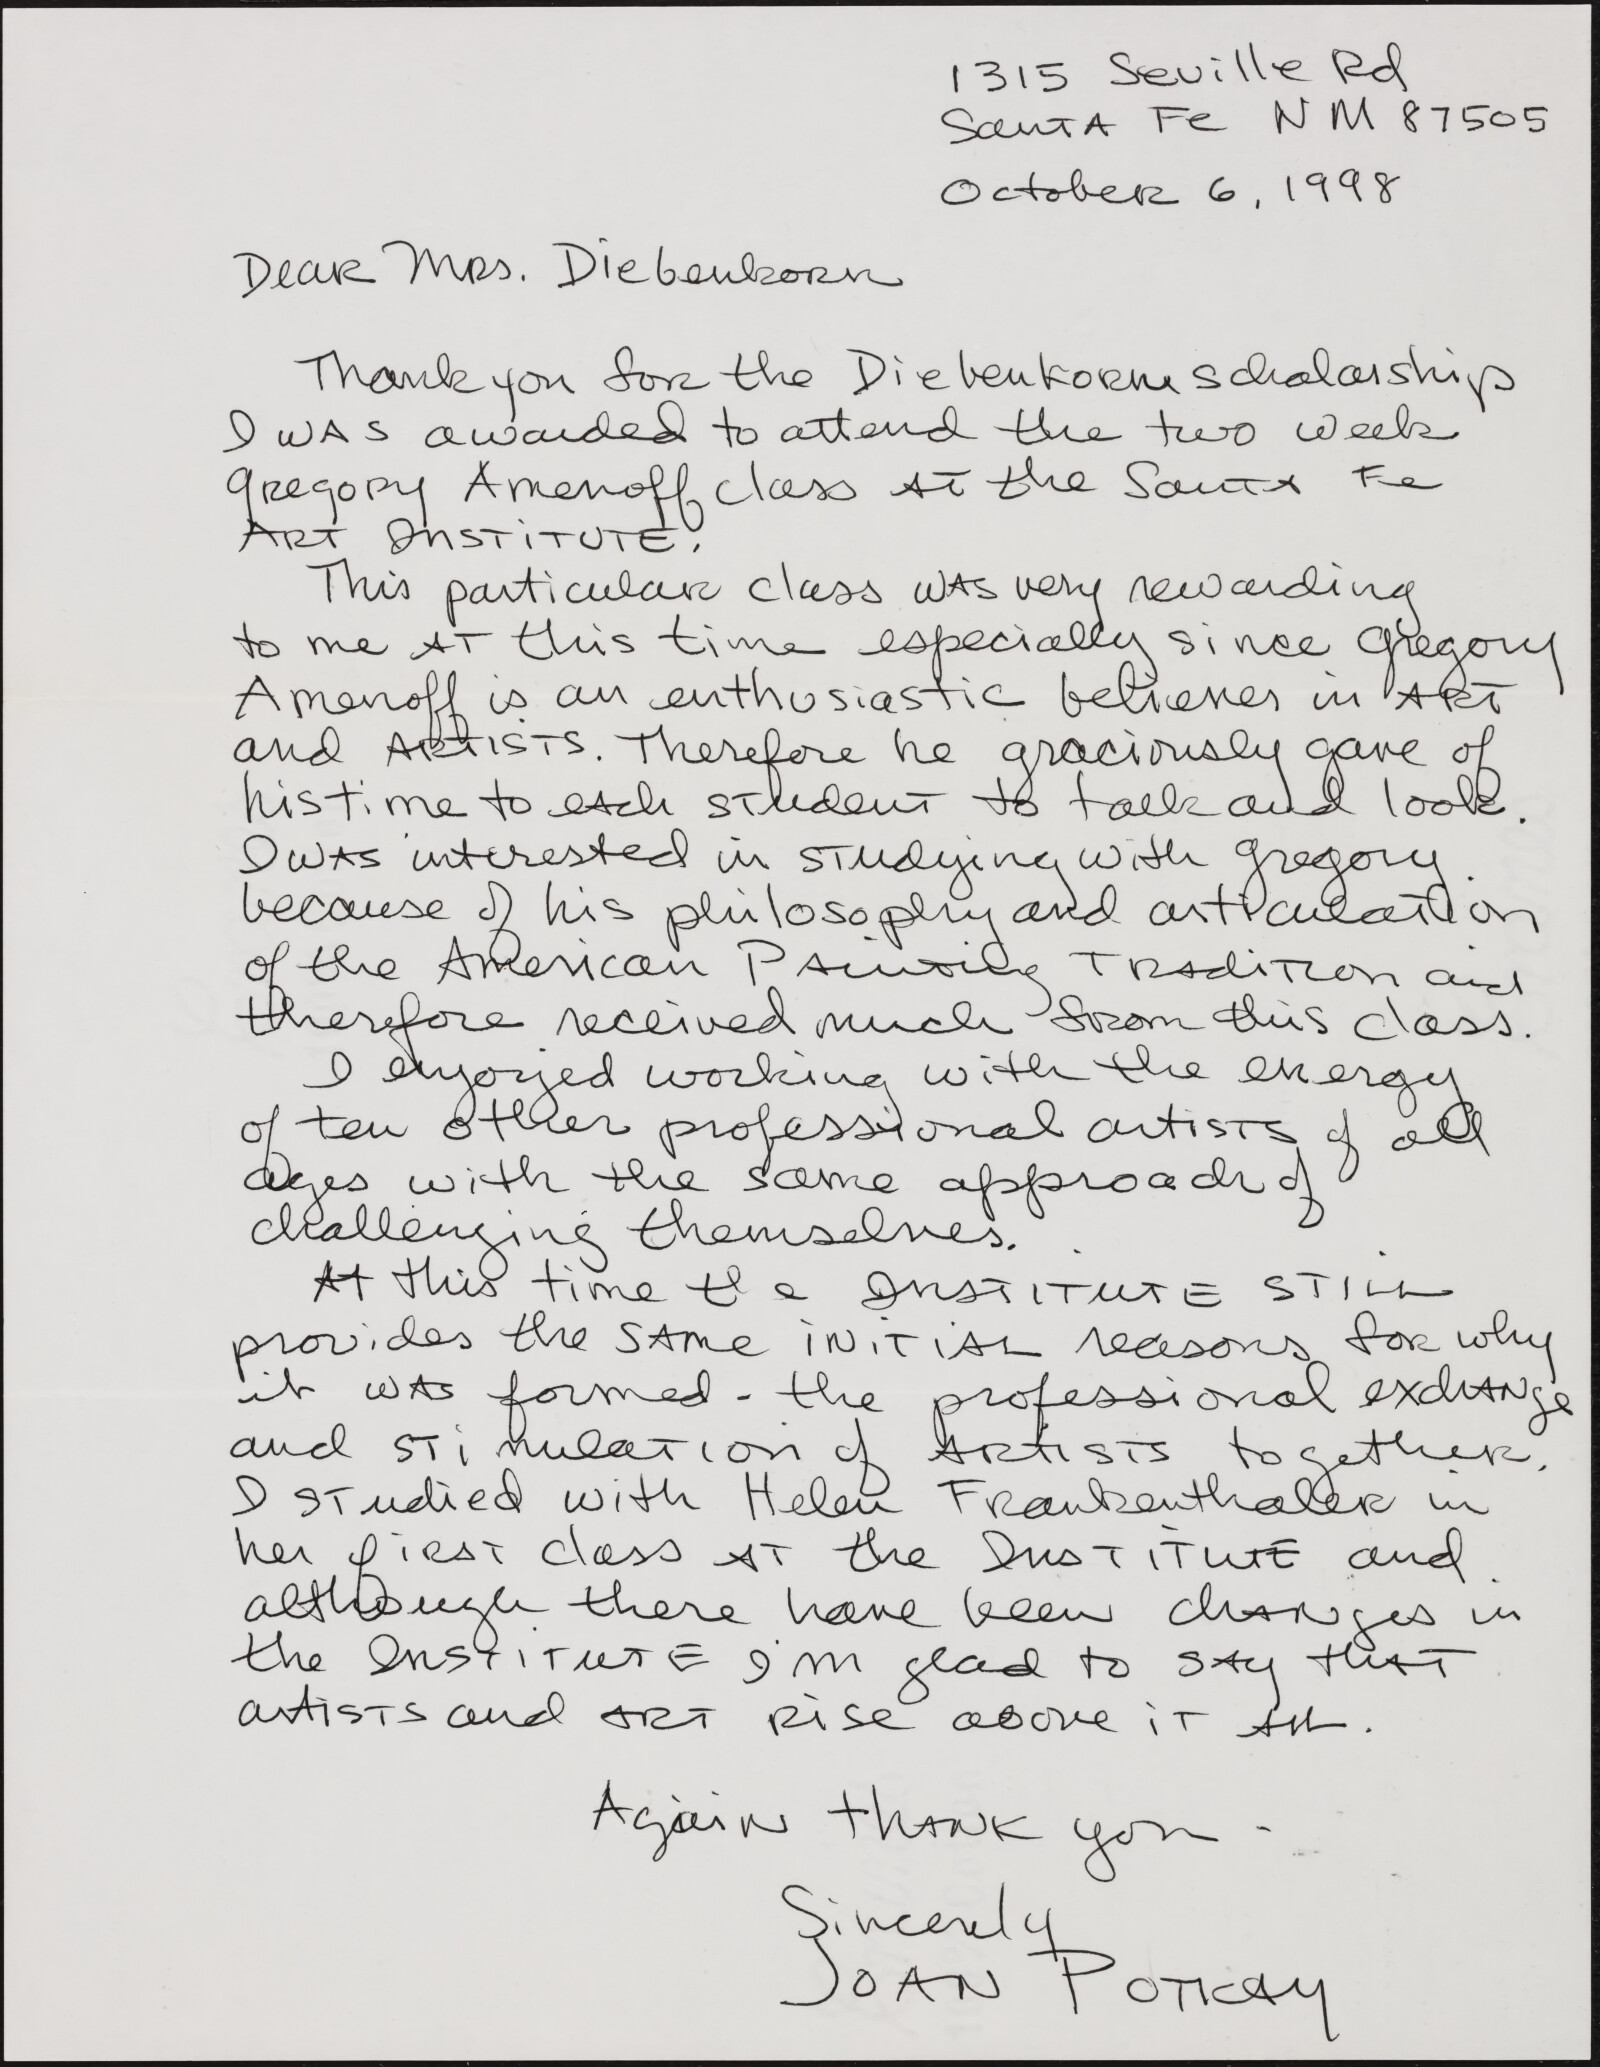 1315 Seville Rd
Santa Fe NM 87505
October 6, 1998
Dear Mrs. Diebenkorn
Thank you for the Diebenkorn scholarship
I was awarded to attend the two week
Gregory Amenoff class at the Santa Fe
Art Institute.
This particular class was very rewarding
to me at this time especially since Gregory
Amenoff is an enthusiastic believer in Art
and Artists. Therefore he graciously gave of
his time to each student to talk and look.
I was interested in studying with Gregory
because of his philosophy and articulation
of the American Painting Tradition and
therefore received much from this class.
I enjoyed working with the energy
of ten other professional artists of all
ages with the same approach of
challenging themselves.
At this time the Institute still
provides the same initial reasons for why
it was formed - the professional exchange
and stimulation of Artists together.
I studied with Helen Frankenthaler in
her first class at the Institute and
although there have been changes in
the Institute I'm glad to say that
artists and art rise above it all.
Again thank you -
Sincerely
Joan Potkay